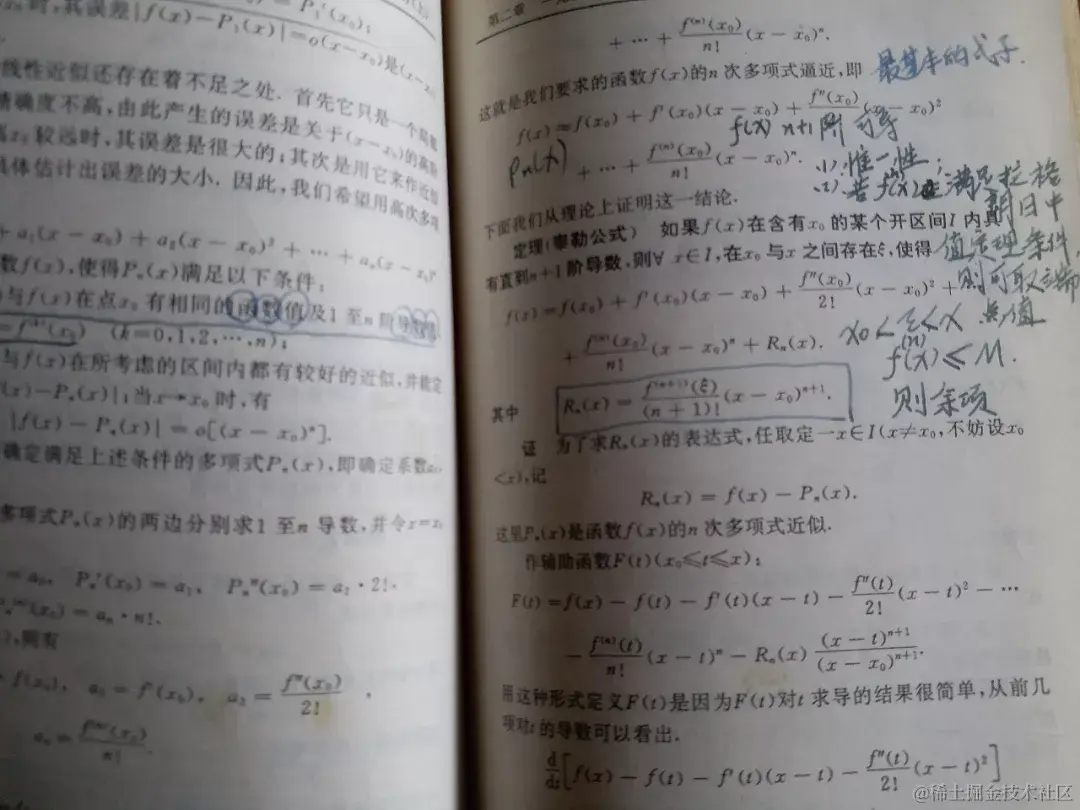 时,其误差|f(x)−P₁(x)|=o(x−x₀)是(x−x₀
线性近似还存在着不足之处. 首先它只是一个局部
精确度不高,由此产生的误差是关于(x−x₀)的高阶
x₀ 较远时,其误差是很大的;其次是用它来作近似
具体估计出误差的大小. 因此,我们希望用高次多项
+ a₁(x − x₀) + a₂(x − x₀)² + ⋯ + aₙ(x − x₀)ⁿ
数f(x),使得Pₙ(x)满足以下条件:
与f(x)在点x₀ 有相同的函数值及1 至n 阶导数值
=f⁽ᵏ⁾(x₀) (k=0,1,2,⋯,n);
与f(x)在所考虑的区间内都有较好的近似,并能定
(x)−Pₙ(x)|;当x→x₀ 时,有
|f(x) − Pₙ(x)| = o[(x − x₀)ⁿ].
确定满足上述条件的多项式Pₙ(x),即确定系数a₀,
多项式Pₙ(x)的两边分别求1 至n 导数,并令x=x₀
= a₀, Pₙ′(x₀) = a₁, Pₙ″(x₀) = a₂ · 2!,
Pₙ⁽ⁿ⁾(x₀) = aₙ · n!.
,则有
f(x₀), a₁ = f′(x₀), a₂ = f″(x₀)/2! ,
aₙ = f⁽ⁿ⁾(x₀)/n!
第二章
+ ⋯ + f⁽ⁿ⁾(x₀)/n! (x − x₀)ⁿ.
这就是我们要求的函数f(x)的n 次多项式逼近,即
最基本的式子.
f(x) ≈ f(x₀) + f′(x₀)(x − x₀) + f″(x₀)/2! (x − x₀)²
f(x) n+1阶 可导
Pn(x)
+ ⋯ + f⁽ⁿ⁾(x₀)/n! (x − x₀)ⁿ.
(1) 惟一性;
(2) 若f(x)在满足拉格
朗日中
值定理条件
则可取之端
点值
下面我们从理论上证明这一结论.
定理(泰勒公式) 如果f(x)在含有x₀ 的某个开区间I 内具
有直到n+1 阶导数,则∀ x∈I,在x₀ 与x 之间存在ξ,使得
f(x) = f(x₀) + f′(x₀)(x − x₀) + f″(x₀)/2! (x − x₀)² +
+ f⁽ⁿ⁾(x₀)/n! (x − x₀)ⁿ + Rₙ(x).
x₀ < ξ < x
f⁽ⁿ⁾(x) ≤ M.
则余项
其中 Rₙ(x) = f⁽ⁿ⁺¹⁾(ξ)/(n + 1)! (x − x₀)ⁿ⁺¹.
证 为了求Rₙ(x)的表达式,任取定一x∈I(x≠x₀,不妨设x₀
<x),记
Rₙ(x) = f(x) − Pₙ(x).
这里Pₙ(x)是函数f(x)的n 次多项式近似.
作辅助函数F(t)(x₀≤t≤x):
F(t) = f(x) − f(t) − f′(t)(x − t) − f″(t)/2! (x − t)² − ⋯
− f⁽ⁿ⁾(t)/n! (x − t)ⁿ − Rₙ(x) (x − t)ⁿ⁺¹/(x − x₀)ⁿ⁺¹.
用这种形式定义F(t)是因为F(t)对t 求导的结果很简单,从前几
项对t的导数可以看出.
d/dt[f(x) − f(t) − f′(t)(x − t) − f″(t)/2! (x − t)²]
@稀土掘金技术社区